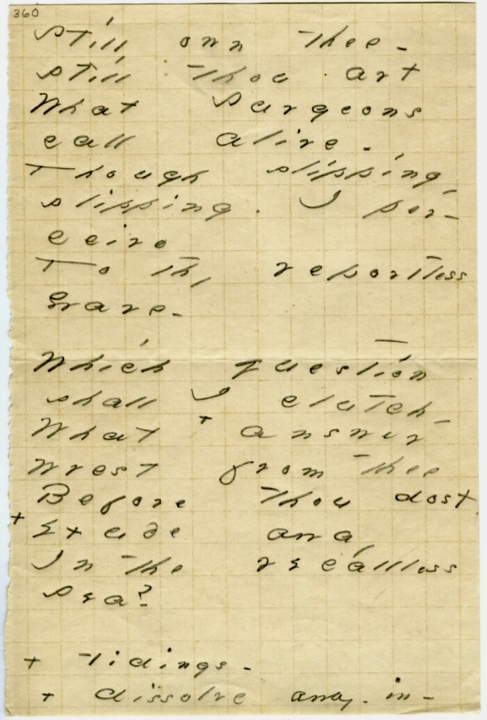 360
Still own thee -
still thou art
What Surgeons
call alive -
Though slipping -
slipping. I per-
ceive
To thy reportless
Grave -
Which question
shall I clutch -
What + answer
wrest from thee
Before thou dost
+ Exude away
In the recallless
Sea?
+ Tidings -
+ dissolve away - in -